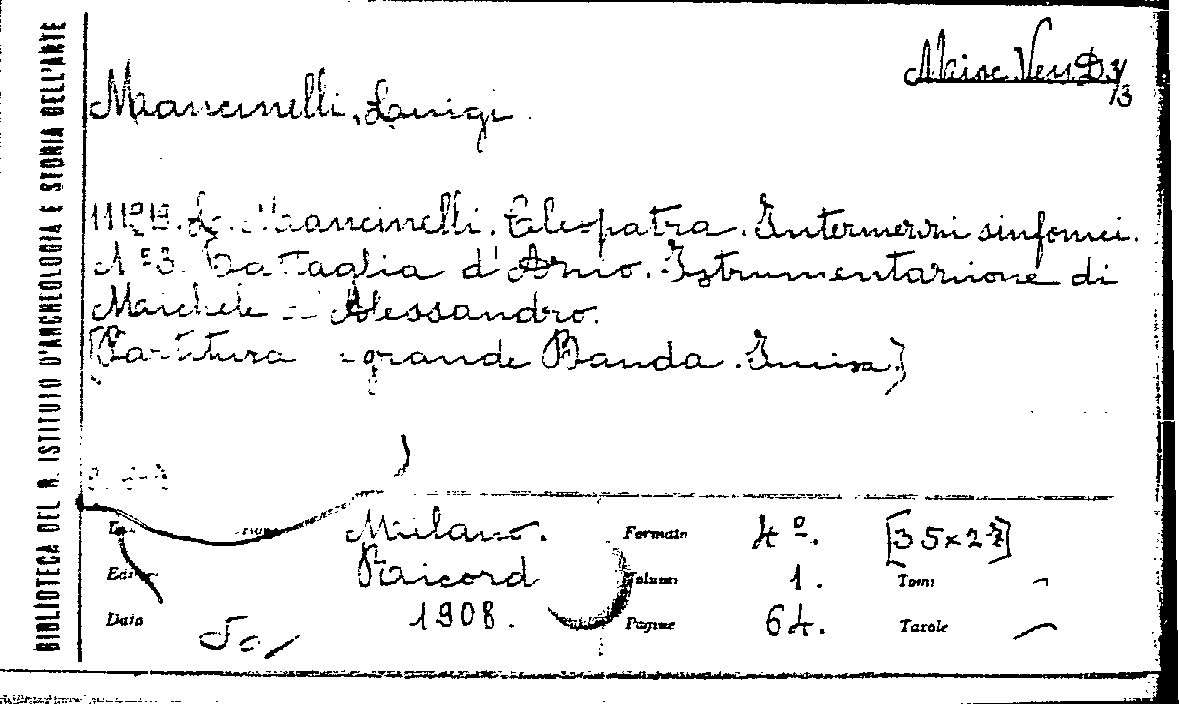 BIBLIOTECA DEL R. ISTITUTO D'ARCHEOLOGIA E STORIA DELL'ARTE
Misc. Ven D 3/3
Mancinelli, Luigi.
111219. L. Mancinelli. Cleopatra. Intermezzi sinfonici.
N.º 3. Battaglia d'Azio. Istrumentazione di
Michele d'Alessandro.
[Partitura grande Banda. Incisa]
Milano.
Formato 4º. [35x27]
Editore Ricord
Volumi 1. Tomi -
Data 1908.
Pagine 64. Tavole -